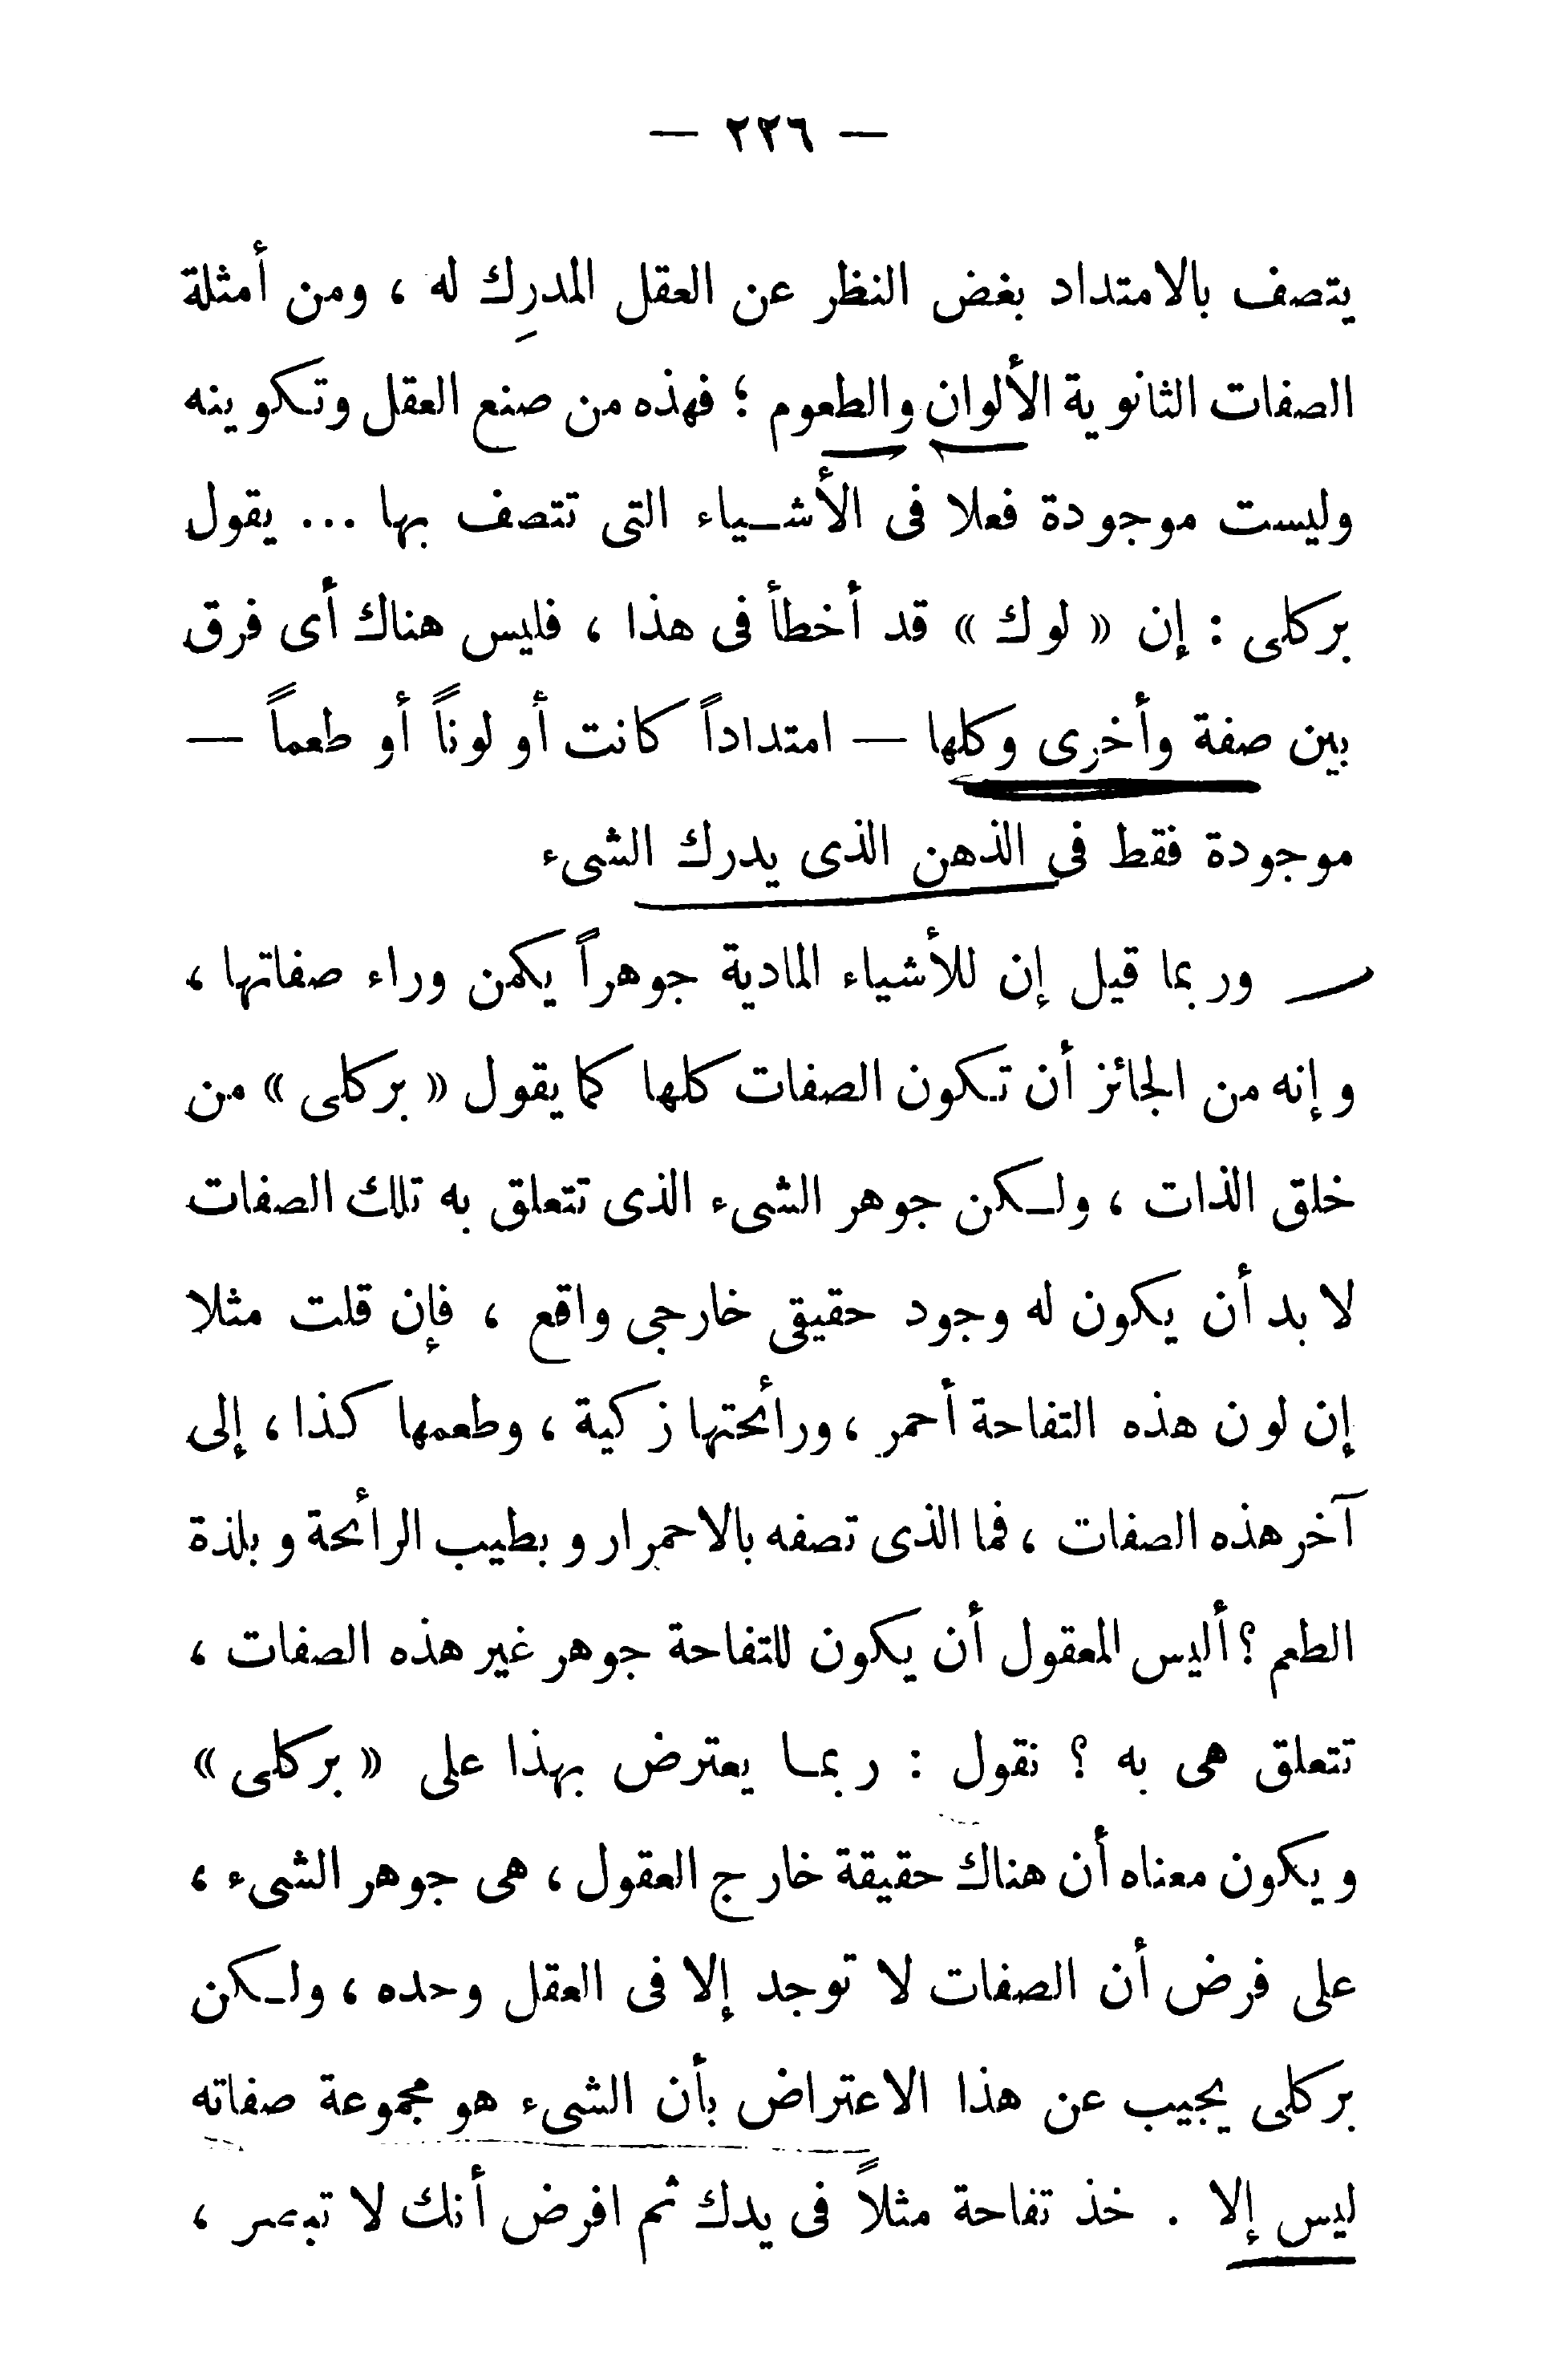 — ٢٢٦ —
يتصف بالامتداد بغض النظر عن العقل المدرِك له ، ومن أمثلة
الصفات الثانوية الألوان والطعوم ؛ فهذه من صنع العقل وتكوينه
وليست موجودة فعلا فى الأشياء التى تتصف بها ... يقول
بركلى : إن « لوك » قد أخطأ فى هذا ، فليس هناك أى فرق
بين صفة وأخرى وكلها — امتداداً كانت أو لوناً أو طعماً —
موجودة فقط فى الذهن الذى يدرك الشىء
وربما قيل إن للأشياء المادية جوهراً يكمن وراء صفاتها ،
وإنه من الجائز أن تكون الصفات كلها كما يقول « بركلى » من
خلق الذات ، ولكن جوهر الشىء الذى تتعلق به تلك الصفات
لا بد أن يكون له وجود حقيقى خارجى واقع ، فإن قلت مثلا
إن لون هذه التفاحة أحمر ، ورائحتها زكية ، وطعمها كذا ، إلى
آخر هذه الصفات ، فما الذى تصفه بالاحمرار وبطيب الرائحة وبلذة
الطعم ؟ أليس المعقول أن يكون للتفاحة جوهر غير هذه الصفات ،
تتعلق هى به ؟ نقول : ربما يعترض بهذا على « بركلى »
ويكون معناه أن هناك حقيقة خارج العقول ، هى جوهر الشىء ،
على فرض أن الصفات لا توجد إلا فى العقل وحده ، ولكن
بركلى يجيب عن هذا الاعتراض بأن الشىء هو مجموعة صفاته
ليس إلا . خذ تفاحة مثلاً فى يدك ثم افرض أنك لا تبصر ،